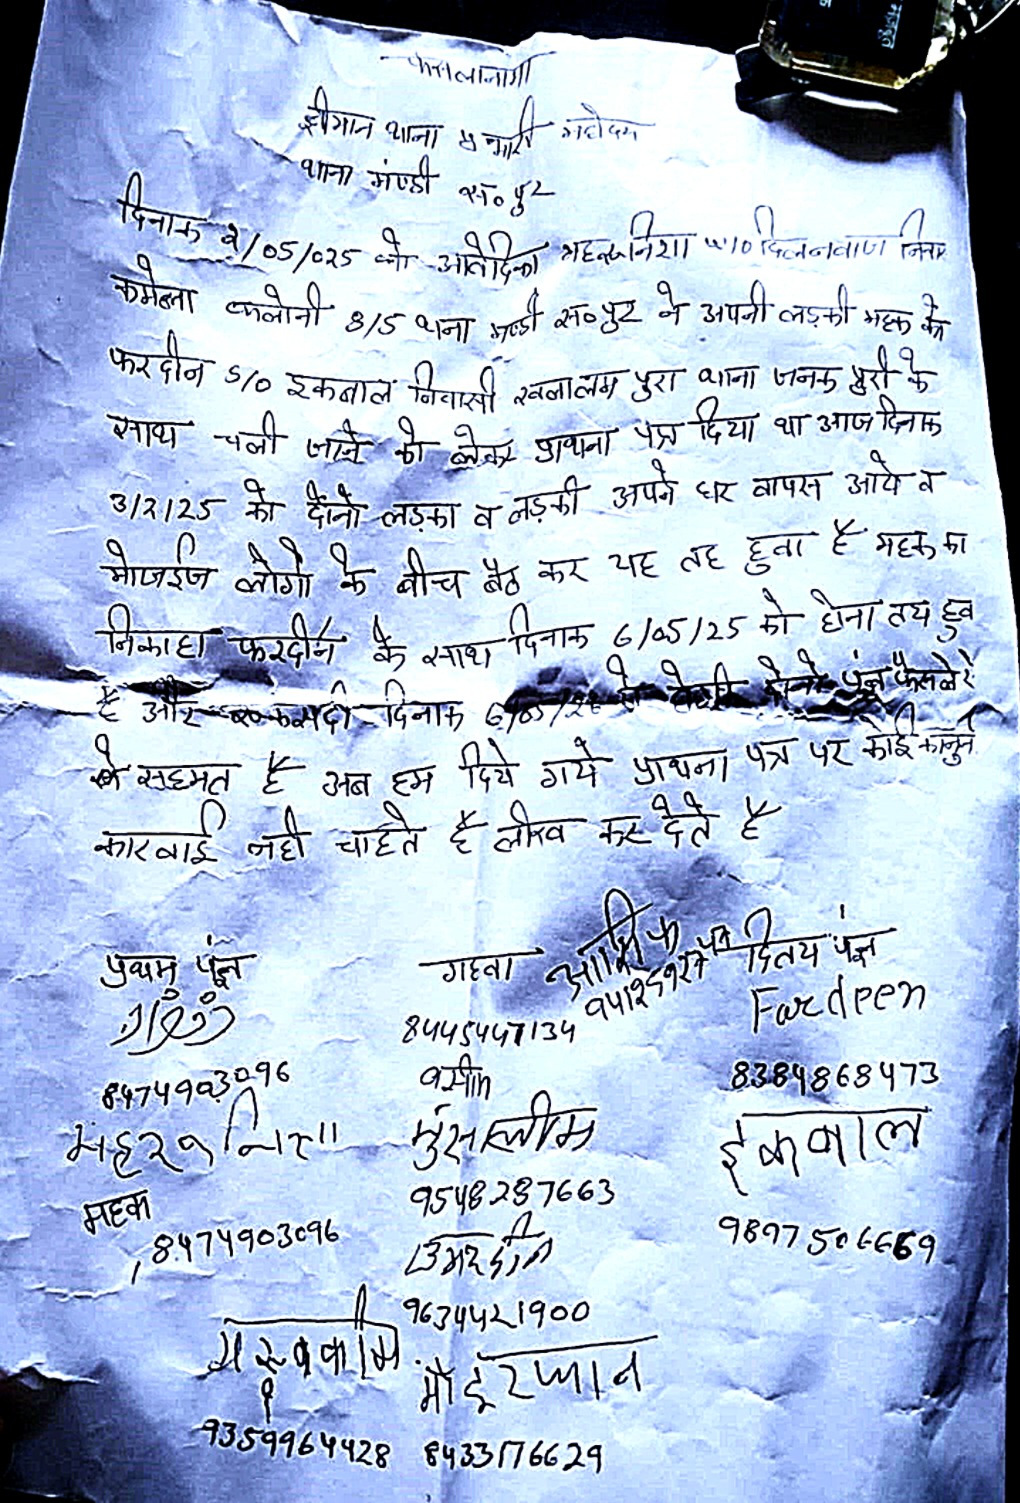 फैसलानामा
श्रीमान थाना प्रभारी महोदय
थाना मण्डी स०पुर
दिनाक 2/05/025 को आवेदिका महरूनिशा w/o दिलनवाज निवा
कमेला कालोनी 3/5 थाना मण्डी स०पुर ने अपनी लड़की महक के
फरदीन S/o इकबाल निवासी पुरा थाना जनक पुरी के
साथ चली जाने को लेकर प्राथना पत्र दिया था आज दिनाक
3/2/25 को दोनो लड़का व लड़की अपने घर वापस आये व
मोजईज लोगो के बीच बैठ कर यह तह हुवा है महक का
निकाहा फरदीन के साथ दिनाक 6/05/25 को होना तय हुव
है और दिनाक 6/05/25 दोनो पंक्ष फैसले से
से सहमत है अब हम दिये गये प्राथना पत्र पर कोई कानुन
कारवाई नही चाहते है लीख कर देते है
प्रथम पंक्ष
8474903096
महरूनिशा
महक
8474903096
गहवा
आशिक
8445447134
वसीम
मुसलीम
9548287663
उमरदीन
9634421900
9359964428
8433176629
दितय पंक्ष
Fardeen
8384868473
इकबाल
9897506669